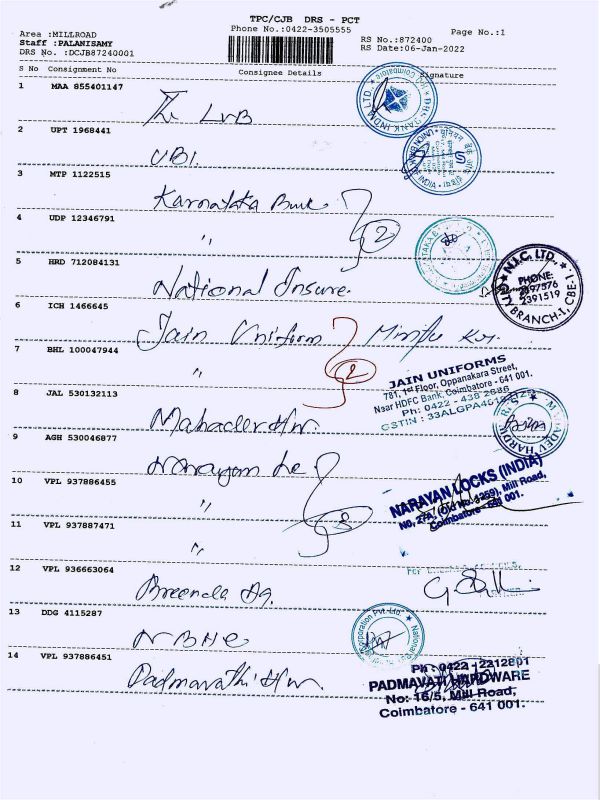 TPC/CJB DRS - PCT
Area :MILLROAD
Phone No.:0422-3505555
Page No.:1
Staff : PALANISAMY
RS No.:872400
DRS No. :DCJB87240001
RS Date:06-Jan-2022
S No Consignment No Consignee Details Signature
1 MAA 855401147
The LVB
2 UPT 1968441
UBI.
3 MTP 1122515
Karnataka Bank
4 UDP 12346791
"
2
5 HRD 712084131
National Insure.
N.I.C. LTD.,
PHONE:
2397576
2391519
BRANCH-I, CBE-1
6 ICH 1466645
Jain Uniform
7 BHL 100047944
"
2
JAIN UNIFORMS
781, 1st Floor, Oppanakara Street,
Near HDFC Bank, Coimbatore - 641 001.
Ph: 0422 - 438 2686
GSTIN : 33ALGPA4619
8 JAL 530132113
Mahadev H/w.
9 AGH 530046877
Narayan Lo
10 VPL 937886455
"
NARAYAN LOCKS (INDIA)
NO, 27A, (Old No. 4259), Mill Road,
Coimbatore - 641 001.
11 VPL 937887471
"
3
12 VPL 936663064
13 DDG 4115287
NBHC
14 VPL 937886451
Padmavathi H/w
Ph : 0422 - 2212801
PADMAVATI HARDWARE
No: 16/5, Mill Road,
Coimbatore - 641 001.